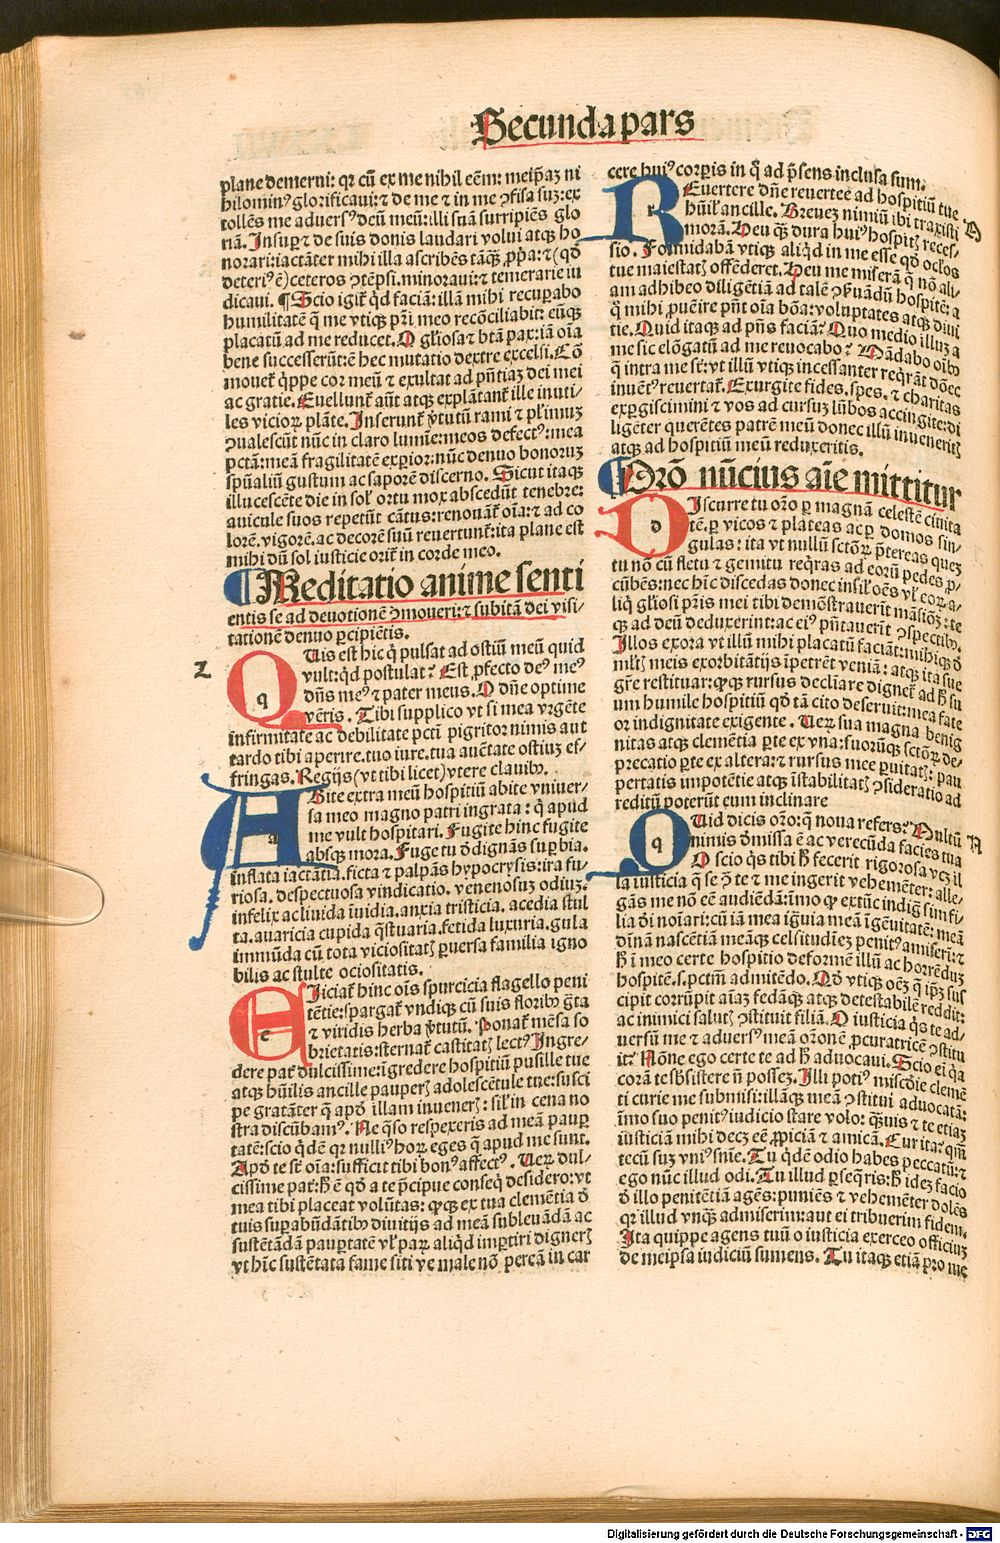 Secunda pars
plane demerui: qꝛ cū ex me nihil eēm: meip̄aꝫ ni
hilominꝰ glorificaui: ⁊ de me ⁊ in me ꝯfisa suꝫ: ex
tollēs me aduersꝰ deū meū: illi suā surripiēs glo
riā. Insuꝑ ⁊ de suis donis laudari volui atqꝫ ho
norari: iactāter mihi illa ascribēs tāqꝫ ꝓpꝛia: ⁊ (qđ
deteriꝰ ē) ceteros ꝯtēpsi. minoraui: ⁊ temerarie iu
dicaui. ¶ Scio igit̄ qđ faciā: illā mihi recuꝑabo
humilitatē q̄ me vtiqꝫ pr̄i meo recōciliabit: eūqꝫ
placatū ad me reducet. O gl̄iosa ⁊ btā pax: iā oīa
bene successerūt: ē hec mutatio dextre excelsi. Cō
mouet̄ q̄ppe cor meū ⁊ exultat ad pn̄tiaꝫ dei mei
ac gratie. Euellunt̄ aūt atqꝫ explātant̄ ille inuti-
les vicioꝝ plāte. Inserunt̄ v̄tutū rami ⁊ pl̄imuꝫ
ꝯualescūt nūc in claro lumīe: meos defectꝰ: mea
pctā: meā fragilitatē exꝑior: nūc denuo bonoruꝫ
spūaliū gustum ac saporē discerno. Sicut itaqꝫ
illucescēte die in sol̄ ortu mox abscedūt tenebre:
auicule suos repetūt cātus: renouāt̄ oīa: ⁊ ad co
lorē. vigorē. ac decorē suū reuertunt̄: ita plane est
mihi dū sol iusticie orit̄ in corde meo.
¶ Meditatio anime senti
entis se ad deuotionē ꝯmoueri: ⁊ subitā dei visi-
tationē denuo ꝑcipiētis.
2
q
QUis est hic q̄ pulsat ad ostiū meū quid
vult: qđ postulat? Est ꝓfecto deꝰ meꝰ
dn̄s meꝰ ⁊ pater meus. O dn̄e optime
vēris. Tibi supplico vt si mea vrgēte
infirmitate ac debilitate pcti pigritor nimis aut
tardo tibi aperire. tuo iure. tua auctate ostiuꝫ ef-
fringas. Regijs (vt tibi licet) vtere clauibꝰ.
a
ABite extra meū hospitiū abite vniuer-
sa meo magno patri ingrata: q̄ apud
me vult hospitari. Fugite hinc fugite
absqꝫ mora. Fuge tu ꝺdignās suꝑbia.
inflata iactātia. ficta ⁊ palpās hypocrysis: ira fu-
riosa. despectuosa vindicatio. venenosuꝫ odiuꝫ.
infelix ac liuida īuidia. anxia tristicia. acedia stul
ta. auaricia cupida q̄stuaria. fetida luxuria. gula
immūda cū tota viciositatꝭ ꝑuersa familia igno
bilis ac stulte ociositatis.
e
EIiciat̄ hinc oīs spurcicia flagello peni
tētie: spargat̄ vndiqꝫ cū suis floribꝰ gr̄ta
⁊ viridis herba v̄tutū. Ponat̄ mēsa so
brietatis: sternat̄ castitatꝭ lectꝰ. Ingre-
dere pat̄ dulcissime: īgredere hospitiū pusille tue
atqꝫ hūīlis ancille pauperꝭ adolescētule tue: susci
pe gratāter q̄ apđ illam inuenerꝭ: sil̄ in cena no
stra discūbamꝰ. Ne q̄so respexeris ad meā pauꝑ
tatē: scio qđē qꝛ nulliꝰ hoꝝ eges q̄ apud me sunt.
Apđ te st̄ oīa: sufficit tibi bonꝰ affectꝰ. Ueꝝ dul-
cissime pat̄: h̄ ē qđ a te p̄cipue conseq̄ desidero: vt
mea tibi placeat volūtas: ꝙqꝫ ex tua clemētia ꝺ
tuis suꝑabūdātibꝰ diuitijs ad meā subleuādā ac
sustētādā pauꝑtatē vl̄ paꝝ aliqđ imꝑtiri dignerꝭ
vt hīc sustētata fame siti ve male nō pereā in car
cere huiꝰ corꝑis in q̄ ad p̄sens inclusa sum.
REuertere dn̄e reuertere ad hospitiū tue
hūīl̄ ancille. Breueꝫ nimiū ibi traxisti
morā. Heu qꝫ dura huiꝰ hospitꝭ reces-
sio. Formidabā vtiqꝫ aliqđ in me esse qđ oclos
tue maiestatꝭ offēderet. Heu me miserā q̄ nō ali-
am adhibeo diligētiā ad talē ꝯẜuādū hospitē: a
q̄ mihi ꝓueīre pn̄t oīa bōa: voluptates atqꝫ diui
tie. Quid itaqꝫ ad pn̄s faciā? Quo medio illuꝫ a
me sic elōgatū ad me reuocabo? Mādabo oībꝰ
q̄ intra me st̄: vt illū vtiqꝫ incessanter req̄rāt dōec
inuētꝰ reuertat̄. Exurgite fides. spes. ⁊ charitas
exꝑgiscimini ⁊ vos ad cursuꝫ lūbos accingite: di
ligēter querētes patrē meū donec illū inueneritꝭ
atqꝫ ad hospitiū meū reduxeritis.
¶ Orō nūcius aīe mittitur
d
DIscurre tu orō ꝑ magnā celestē ciuita
tē. ꝑ vicos ⁊ plateas ac ꝑ domos sin-
gulas: ita vt nullū sctōꝝ p̄tereas queꝫ
tu nō cū fletu ⁊ gemitu req̄ras ad eorū pedes ꝓ-
cūbēs: nec hīc discedas donec insil̄ oēs vl̄ eoꝝ a-
liq̄ gl̄iosi pr̄is mei tibi demōstrauerīt māsiōꝫ: te
qꝫ ad deū deduxerint: ac eiꝰ pn̄tauerīt ꝯspectibꝰ.
Illos exora vt illū mihi placatū faciāt: mihiqꝫ ꝺ
ml̄tꝭ meis exorbitātijs īpetrēt veniā: atqꝫ ita sue
gr̄e restituar: ꝙqꝫ rursus decliare dignet̄ ad h̄ su
um humile hospitiū qđ tā cito deseruit: mea fate
or indignitate exigente. Ueꝝ sua magna benig
nitas atqꝫ clemētia ꝑte ex vna: suorūqꝫ sctōꝝ de-
precatio ꝑte ex altera: ⁊ rursus mee ꝑuitatꝭ: pau
pertatis impotētie atqꝫ īstabilitatꝭ ꝯsideratio ad
reditū poterūt eum inclinare
q
QUid dicis orō: q̄ noua refers? Multū
nimis ꝺmissa ē ac verecūda facies tua
O scio q̄s tibi h̄ fecerit rigorosa veꝫ il
la iusticia q̄ se ꝯ̄ te ⁊ me ingerit vehemēter: alle-
gās me nō eē audiēdā: īmo ꝙ extūc indiḡ sim fi-
lia ꝺi noīari: cū iā mea ig̅uia meā īgēuitatē: meā
dinā nascētiā meāqꝫ celsitudīeꝫ penitꝰ amiserī: ⁊
h̄ ī meo certe hospitio deformē illū ac horrēduꝫ
hospitē. s. pctm̄ admitēdo. Qđ vtiqꝫ oēꝫ q̄ ip̄ꝫ sus
cipit corrūpit aīaꝫ fedāqꝫ atqꝫ detestabilē reddit:
ac inimici salutꝭ ꝯstituit filiā. O iusticia q̄s te ad-
uersū me ⁊ aduersꝰ meā orōnē ꝓcuratricē ꝯstitu
it? Nōne ego certe te ad h̄ aduocaui. Scio ei q̄a
corā te sb̄sistere n̄ posseꝫ. Illi potiꝰ miscd̄ie clemē
ti curie me submisi: illāqꝫ meā ꝯstitui aduocatā:
īmo suo penitꝰ iudicio stare volo: q̄uis ⁊ te etiaꝫ
iusticiā mihi deceꝫ eē ꝓpiciā ⁊ amicā. Cur ita? qm̄
tecū suꝫ vniꝰ snīe. Tu qđē odio habes peccatū: ⁊
ego nūc illud odi. Tu illud ꝑseq̄ris: h̄ ideꝫ facio
ꝺ illo penitētiā agēs: puniēs ⁊ vehemēter dolēs
qꝛ illud vnqꝫ admiserim: aut ei tribuerim fidem.
Ita quippe agens tuū o iusticia exerceo officiuꝫ
de meip̄sa iudiciū sumens. Tu itaqꝫ etiā ꝓro me
Digitalisierung gefördert durch die Deutsche Forschungsgemeinschaft - DFG